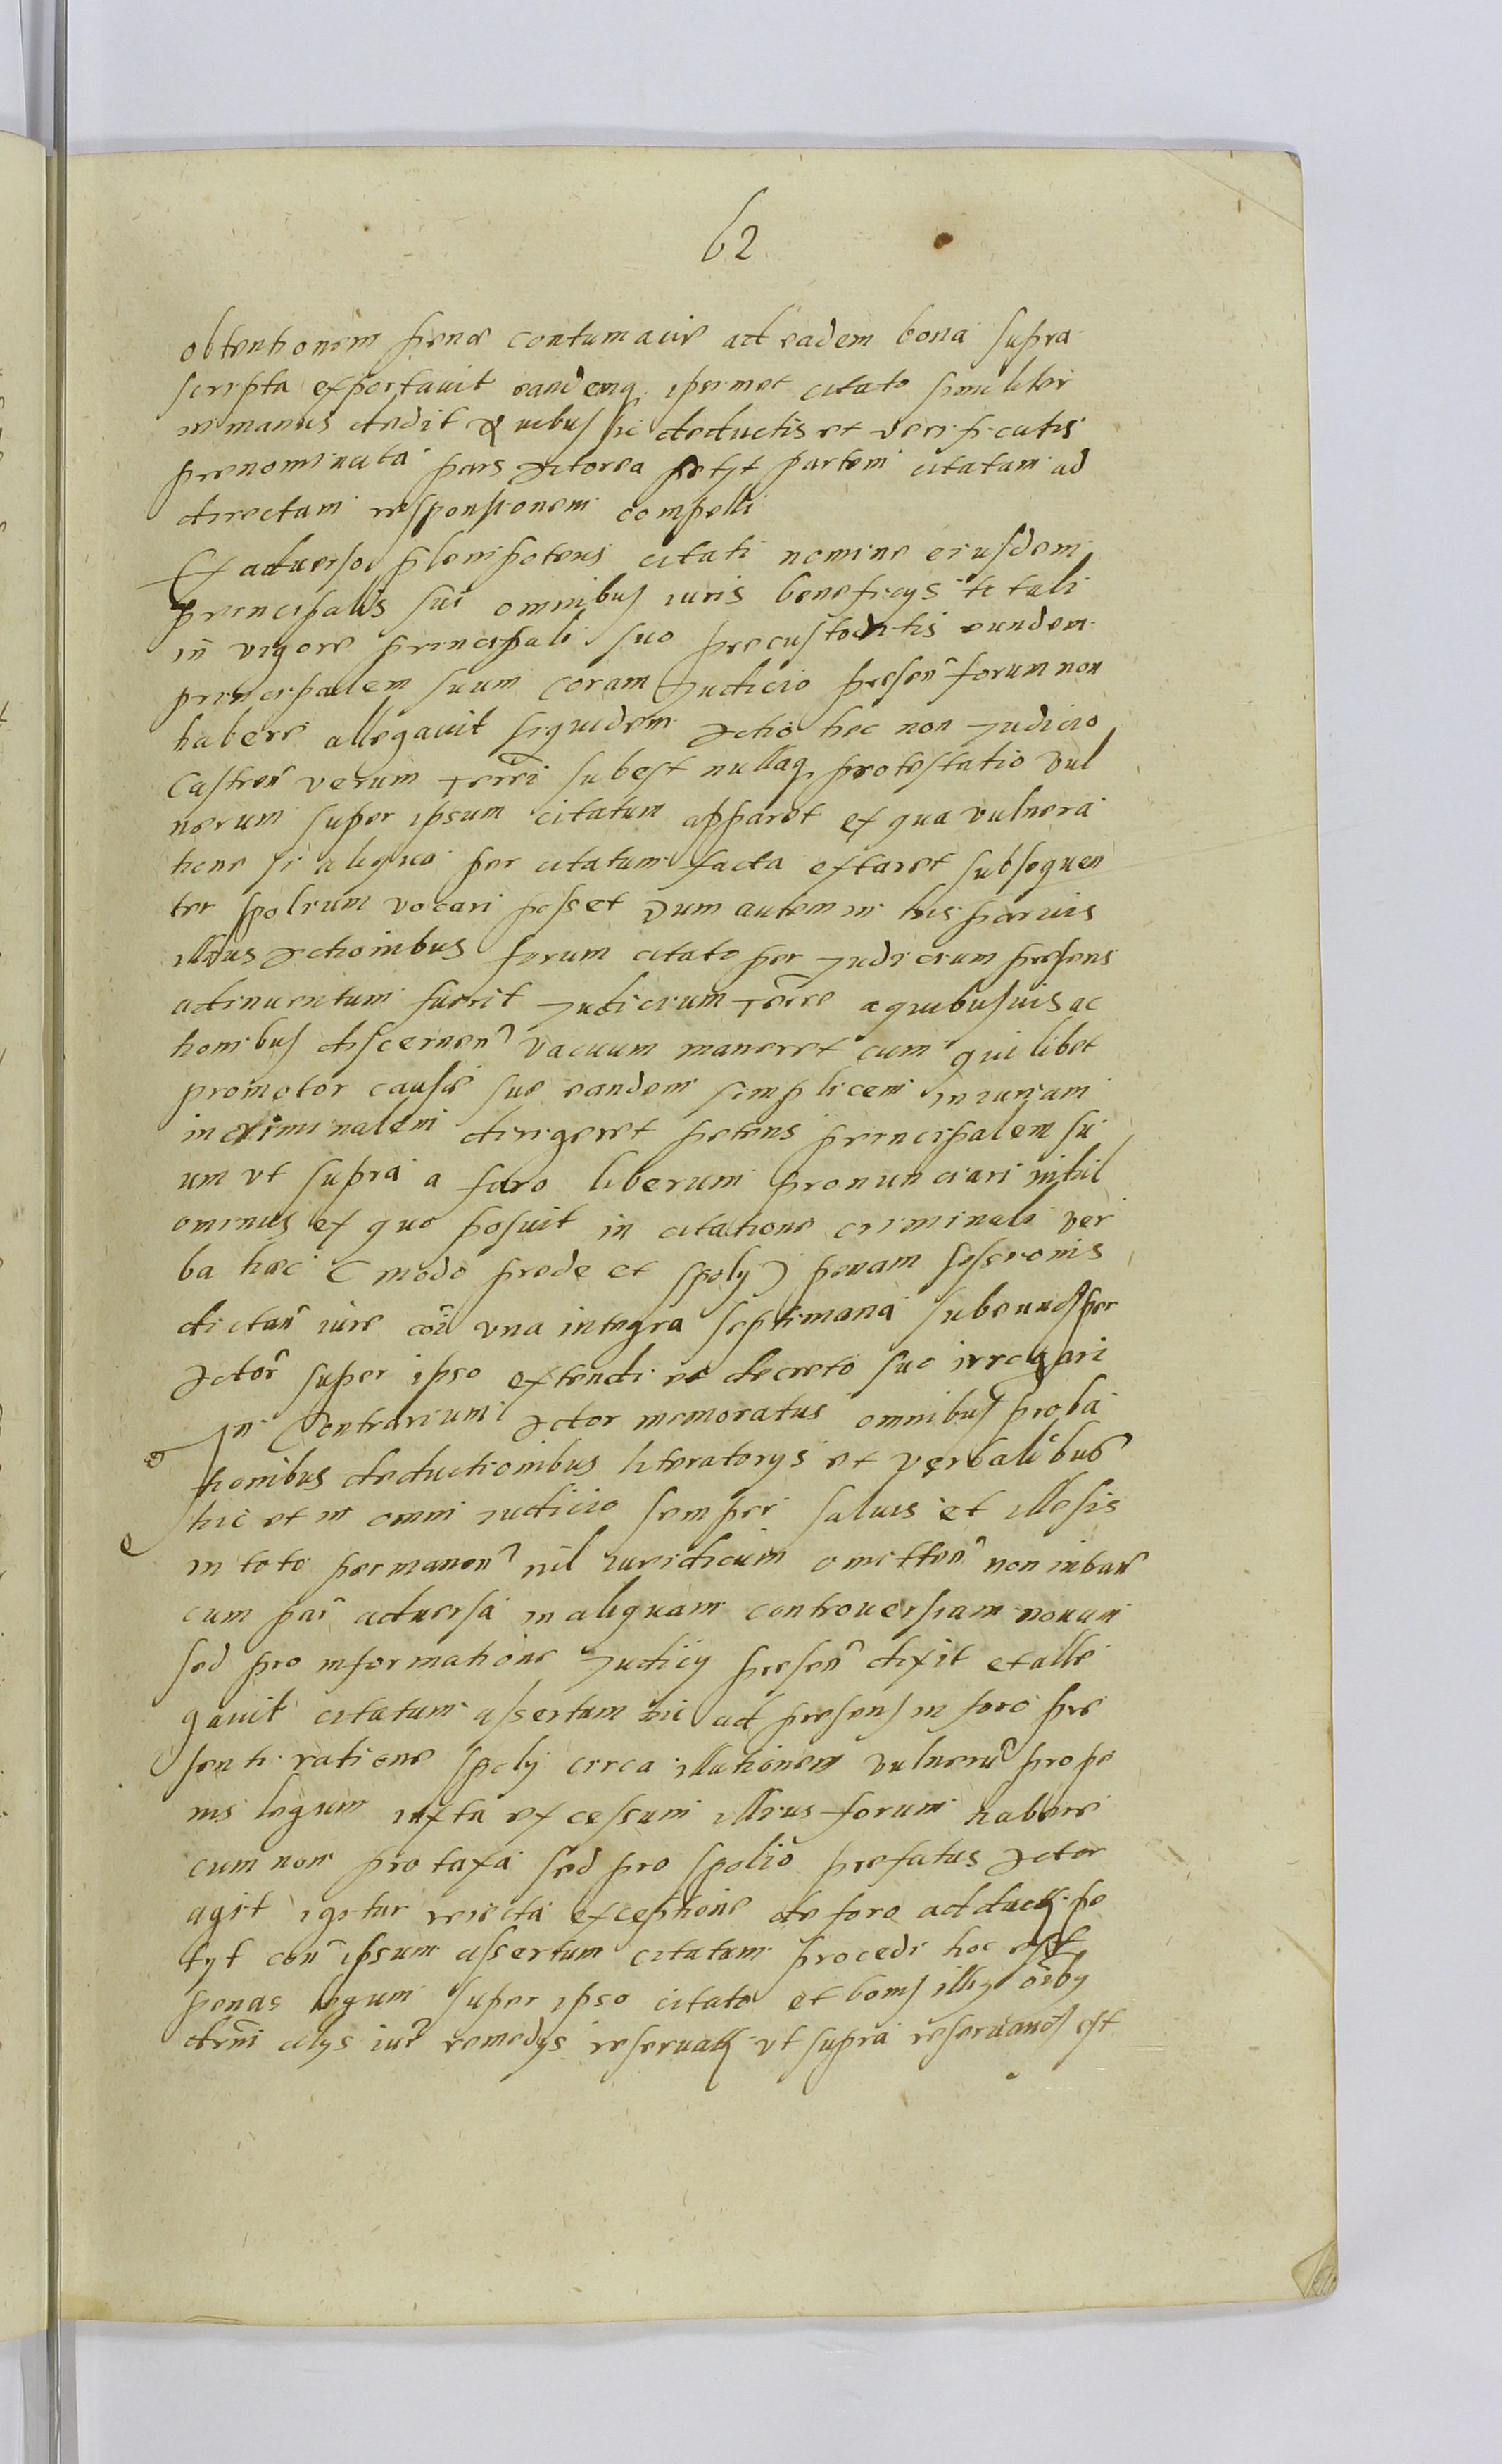 62
obtentionem pene contumacie ad eadem bona supra
scripta exportavit eandemq. ipsemet citato similiter
in manus dedit Quibus sic deductis et verificatis
prenominata pars Actorea petyt partem citatam ad
directam responsionem compelli
Ex adverso plenipotens citati nomine eiusdem
principalis sui omnibus iuris beneficys ti tali
in vigore principali suo precustoditis eundem
principalem suum coram Judicio presen forum non
habere allegavit siquidem Actio hec non Judicio
castren verum Terri subest nullaq. protestatio vul
nerum super ipsum citatum apparet ex qua vulnera
tione si aliqua per citatum facta extaret subsequen
ter spolium vocari posset Dum autem in his parvis
illius Actionibus forum citato per Judicium presens
adinventum fuerit Judicium Terre a quibusvis ac
tionibus discernen vacuum maneret cum quilibet
promotor cause sue eandem simplicem iniuriam
in criminalem dirigeret petens principalem su
um vt supra a foro liberum pronunciari nihil
ominus ex quo posuit in citatione criminali ver
ba hec ( modo prede et spoly ) penam sessionis
dictan iure coi vna integra septimana subeund per
Actor super ipso extendi et decreto suo irrogari
In Contrarium Actor memoratus omnibus proba
tionibus deductionibus literatorys et verbalibus
hic et in omni iudicio semper salvis et illesis
in toto permanen nil iuridicum omitten non intran
cum par adversa in aliquam controversiam novam
sed pro informatione Judicy presen dixit et alle
gavit citatum assertum hic ad presens in foro pre
senti ratione spoly circa illationem vulneru prope
nis legum iuxta excessum illius forum habere
cum non pro taxa sed pro spolio prefatus Actor
agit igitur reiecta exceptione de foro adduct pe
tyt con ipsum assertum citatum procedi hoc est
penas legum super ipso citato et bonis illius oibus
drni alys iur remedys reservatis vt supra reservand est